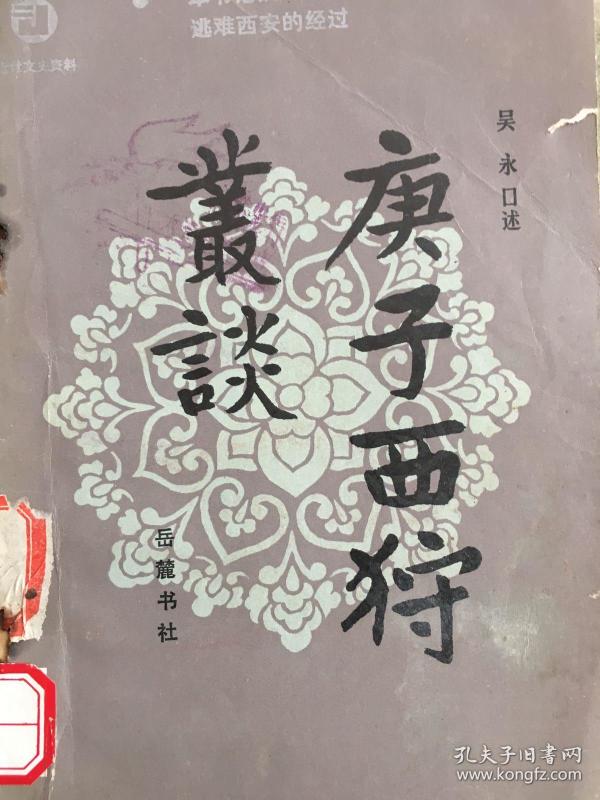 逃难西安的经过
文史资料
吴永口述
庚子西狩
叢談
岳麓书社
孔夫子旧书网
www.kongfz.com